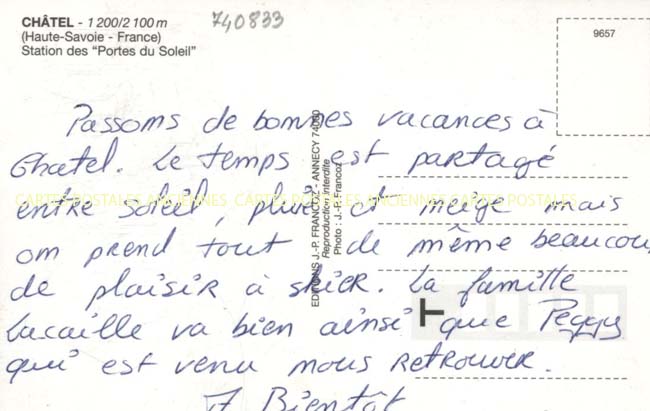 CHÂTEL - 1 200/2 100 m
(Haute-Savoie - France)
Station des "Portes du Soleil"
740833
9657
Passons de bonnes vacances à
Chatel. Le temps est partagé
entre soleil, pluie et neige mais
on prend tout de même beaucoup
de plaisir à skier. La famille
Lacaille va bien ainsi que Peggy
qui est venu nous retrouver.
A Bientôt
EDITIONS J.-P. FRANCOZ - ANNECY 74000
Reproduction interdite
Photo : J.-P. Francoz
CARTES POSTALES ANCIENNES CARTES POSTALES ANCIENNES CARTES POSTALES ANCIENNES